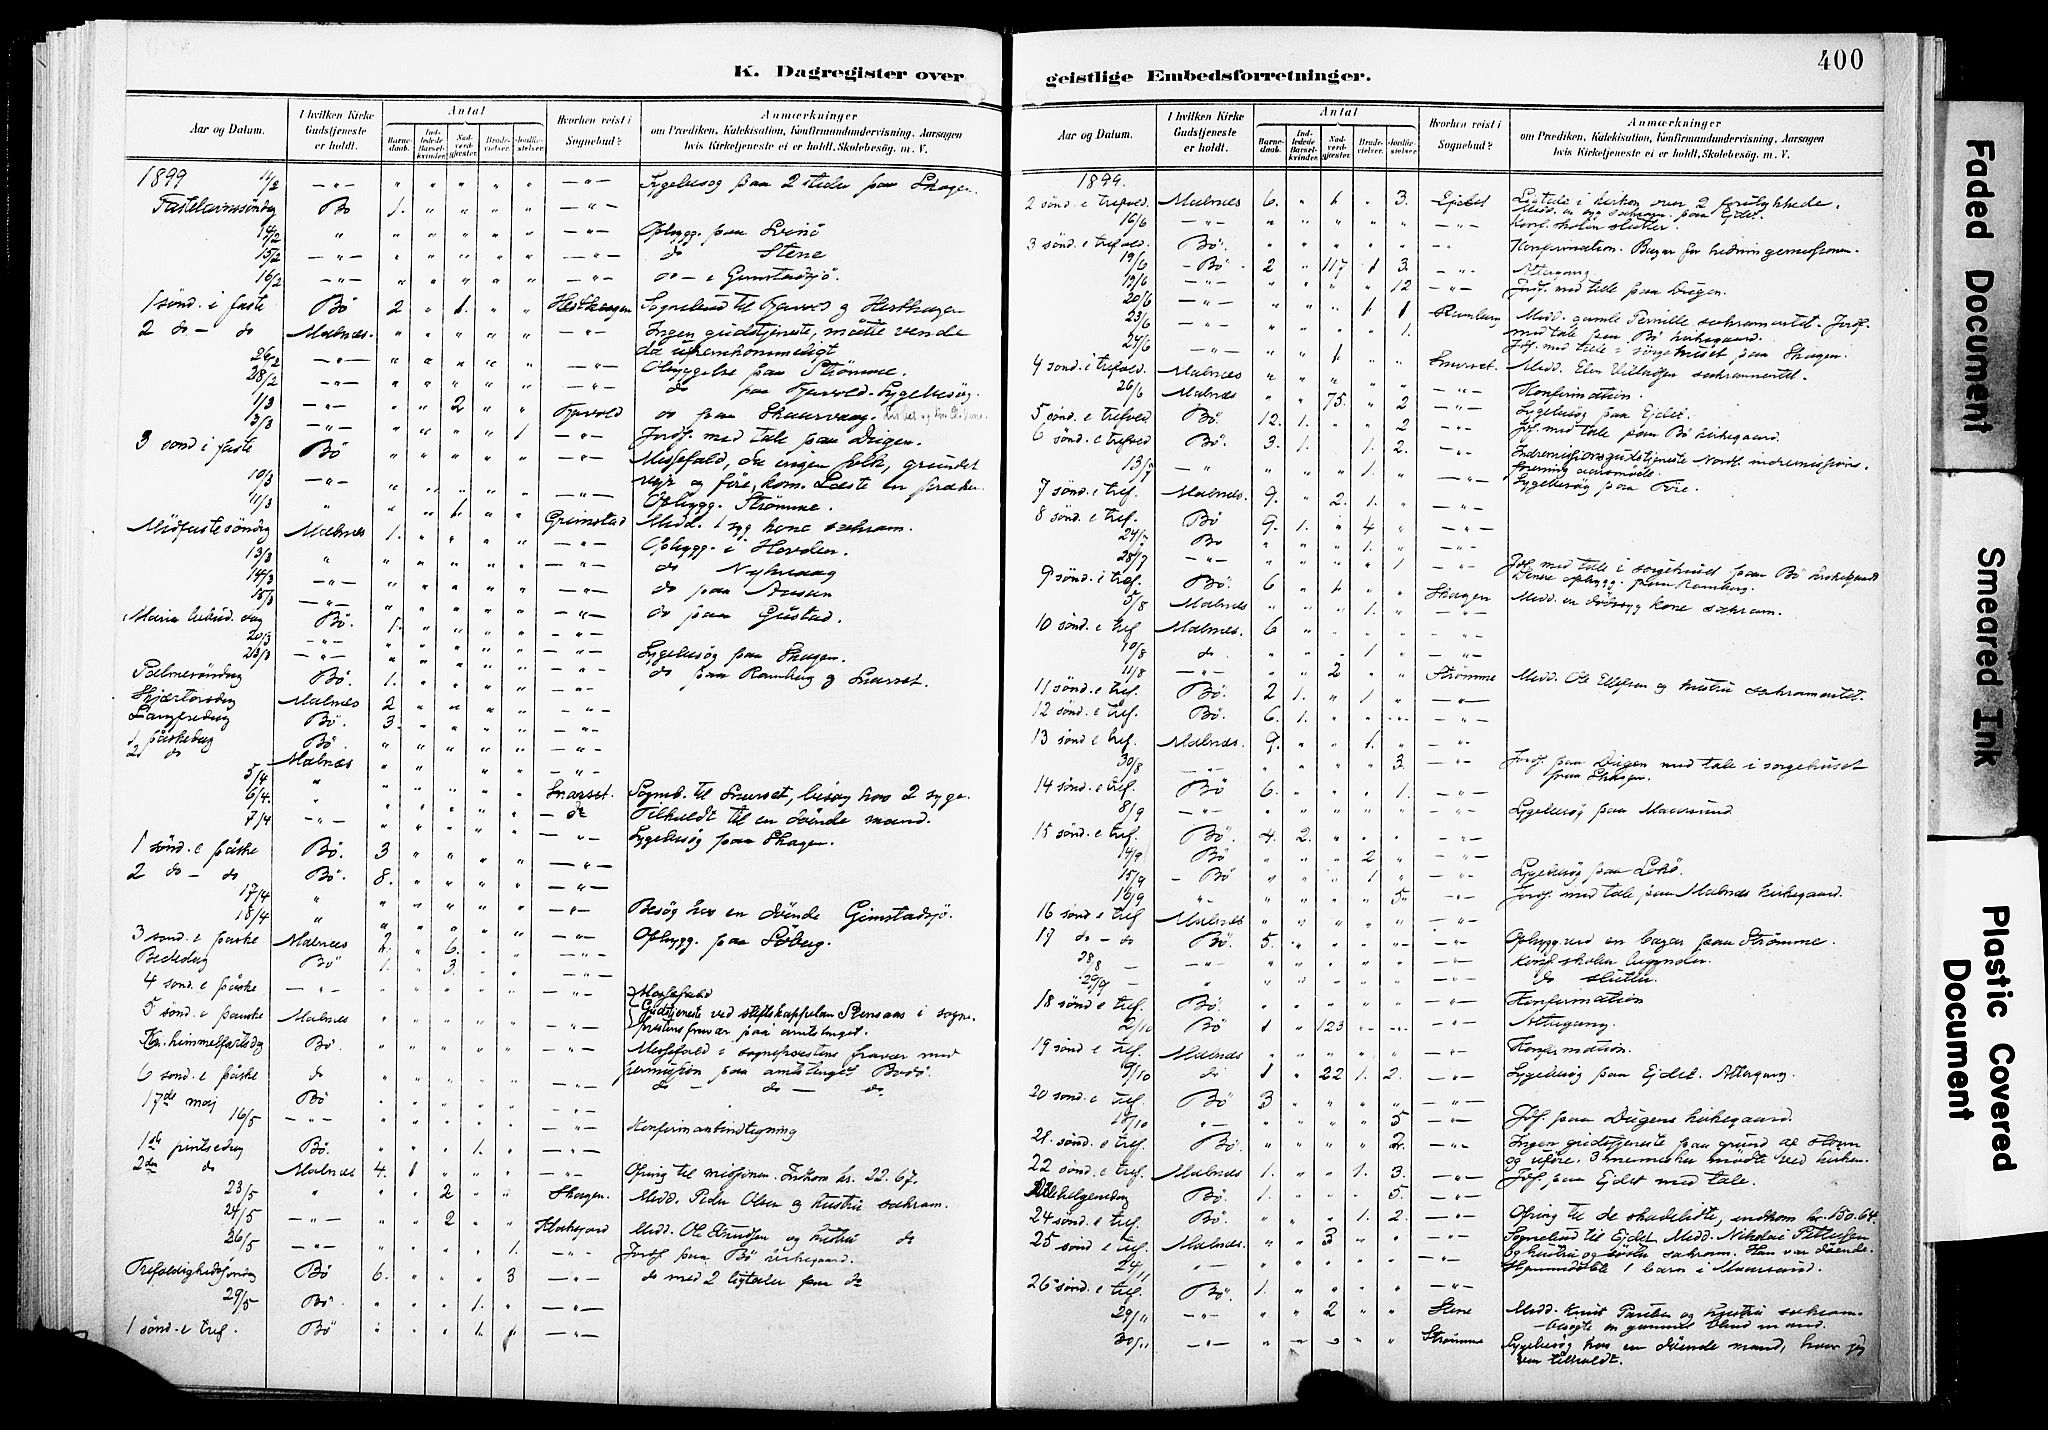 K. Dagregister over
Aar og Datum.
I hvilken Kirke Gudstjeneste er holdt.
Antal
Barnedaab.
Indledede Barselkvinder.
Nadverdgjester.
Brudevielser.
Jordfæstelser.
Hvorhen reist i Sognebud?
Anmærkninger
om Prædiken, Katekisation, Konfirmandundervisning, Aarsagen
hvis Kirketjeneste ei er holdt, Skolebesøg. m. V.
1899 11/2 Sygebesøg paa 2 steder paa Skagen.
Fastelavnssøndag Bø 1.
14/2 Opbygg. paa Svinø
15/2 do Stene
16/2 do - Gimstadsjø
1 sønd. i faste Bø 2 1. Hesthagen Sognebud til Fjærvold og Hesthagen
2 do - do Malnes. Ingen gudstjeneste, måtte vende
da ufremkommeligt
26/2 Opbyggelse paa Strømme.
28/2 do paa Fjærvold. Sygebesøg.
1/3 2 Fjærvold do paa Skaarvaag.
3/3 1 Jordf. med tale paa Dugen.
3 sønd i faste Bø Messefald, da ingen folk, grundet
10/3 vejr og føre, kom. Læste en præken.
11/3 1. Opbygg. Strømme.
Midfastesøndag Malnes 1. Grimstad Medd. 1 syg kone sakram.
13/3 Opbygg. i Hovden.
14/3 do Nykvaag
15/3 do paa Aasan
Maria bebud. dag Bø. 1. do paa Gustad.
20/3
23/3 Sygebesøg paa Skagen.
Palmesøndag Bø. 1. do paa Ramberg og Snarset.
Skjærtorsdag Malnes 2
Langfredag Bø. 3.
1 påskedag Bø.
2 do Malnes
5/4
6/4. Snarset. Sogneb. til Snarset, besøg hos 2 syge.
7/4 do Tilkaldt til en døende mand.
1 sønd. e påske Bø. 3 Sygebesøg paa Skagen.
2 do - do Bø. 8.
17/4
18/4 Besøg hos en døende Gimstadsjø.
3 sønd. e påske Malnes 2. 6. Opbygg. paa Søberg.
Bededag Bø 1. 3.
4 sønd. e påske Messefald
5 sønd. e paaske Malnes Gudstjeneste ved stiftskappelan Stensaas i sogne-
prestens fravær paa amtstinget.
Kr. himmelfartsdag Bø. Messefald i sogneprestens fravær med
6 sønd. e påske do permission paa amtstinget Bodø.
17de maj Bø do - do - do
16/5 Konfirmantindtegning
1ste pintsedag Bø. 1.
2den do Malnes 4. 1 Ofring til missionen. Indkom kr. 22.67.
23/5 2 Skagen. Medd. Peder Olsen og hustru sakram.
24/5 2 Medd. Ole Knudsen og hustru do
26/5 1. Jordf. paa Bø kirkegaard.
Trefoldighedssøndag Bø 6. 3 do med 2 ligtaler paa do
29/5 Bø. 1.
1 sønd. e tref. Bø 1.
geistlige Embedsforretninger.
400
Aar og Datum.
I hvilken Kirke Gudstjeneste er holdt.
Antal
Barnedaab.
Indledede Barselkvinder.
Nadverdgjester.
Brudevielser.
Jordfæstelser.
Hvorhen reist i Sognebud?
Anmærkninger
om Prædiken, Katekisation, Konfirmandundervisning, Aarsagen
hvis Kirketjeneste ei er holdt, Skolebesøg. m. V.
1899.
2 sønd. e trefold. Malnes 6. 1 3. Ejdet Ligtale i kirken over 2 forulykkede.
Medd. en syg sakram. paa Ejdet.
16/6 Konf. skolen slutter.
3 sønd. e trefold. Bø. Konfirmation. Bazar for hedningemissionen.
19/6 Bø. 2 117 1 3. Altergang.
19/6 12 Jordf. med tale paa Dugen.
20/6 1 1
23/6 1. Ramberg Medd. gamle Pernille sakramentet. Jordf.
med tale paa Bø kirkegaard.
24/6 1. Jdf. med tale i sørgehuset paa Skagen.
4 sønd. e trefold. Malnes Snarset. Medd. Elen sakramentet.
26/6 Malnes 75. 2 Konfirmation.
5 sønd. e trefold Bø. 12. 1. 2 Sygebesøg paa Ejdet.
6 sønd. e trefold Bø. 3. 1. 1. 2. Jdf. med tale paa Bø kirkegaard.
13/7 1. Indremissionsgudstjeneste Nordl. indremissions-
forening aarsmøde.
7 sønd. e tref. Malnes. 9. 2. 1. Sygebesøg paa Føre.
8 sønd. e tref. Bø 9. 1. 4
24/7 Bø 1.
28/7 1 Jdf. med tale i sørgehuset paa Bø kirkegaard
9 sønd. i tref. Bø. 6 1 Senere opbygg. paa Ramberg.
5/8 Malnes 1. Skagen Medd. en dødssyg kone sakram.
10 sønd. e tref. Malnes. 6
10/8 do 1
11/8 2 Strømme Medd. Ole Ellefsen og hustru sakramentet.
11 sønd. e tref. Bø. 2 1. 1
12 sønd. e tref. Bø. 6. 1.
13 sønd e tref. Malnes. 9. 1.
30/8 3. Jordf. paa Dugen med tale i sørgehuset
paa Skagen.
14 sønd. e tref. Bø 6. 1.
8/9 Sygebesøg paa Maarsund.
15 sønd. e tref. Bø. 4. 2.
14/9 Bø 2
15/9 Bø 1 Sygebesøg paa Lekø.
16/9 5 Jordf. med tale paa Malnes kirkegaard.
16 sønd e tref Malnes
17 do - do Bø. 5. Opbygg. ved en bazar paa Strømme.
28/8 Konf. skolen begynder.
29/9 do slutter.
18 sønd e tref. Bø. Konfirmation
2/10 Bø 1 123 Altergang.
19 sønd e tref. Malnes Konfirmation.
9/10 do 1 22 1. 2. Sygebesøg paa Ejdet. Altergang.
20 sønd. e tref. Bø 3
18/10 5 Jdf. paa Dugens kirkegaard.
21. sønd. e tref Bø. 2. Ingen gudstjeneste paa grund af storm
og uføre. 3 mennesker mødte ved kirken.
22 sønd. e tref. Malnes 1. 1. 3. Jdf. paa Ejdet med tale.
Allehelgensdag Bø. 1. 5.
24 sønd e tref. Bø. 1. 2. Ofring til de skadelidte, indkom kr. 150.64.
25 sønd e tref. Malnes. 3 Sognebud til Ejdet Medd. Nikolai Pettersen
og hustru og sakram. Han var døende.
24/11 1 barn i Maarsund.
26 sønd. e tref. Bø. 1.
29/11 2 Stene Medd. Knut og hustru sakram.
- besøgte en gammel blind mand.
30/11 Strømme Sygebesøg hos en døende mand, hvor jeg
var tilkaldt.
Faded Document
Smeared Ink
Plastic Covered Document